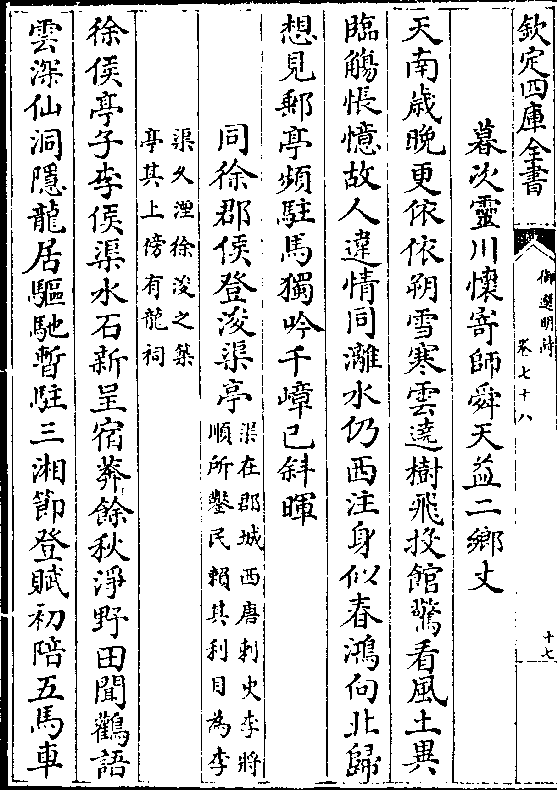 欽定四庫全書
御選明詩
卷七十八
十七
暮次靈川懷寄師舜天益二鄉丈
天南歲晚更依依朔雪寒雲遶樹飛投館驚看風土異
臨觴悵憶故人違情同灕水仍西注身似春鴻向北歸
想見郵亭頻駐馬獨吟千嶂已斜暉
同徐郡侯登浚渠亭渠在郡城西唐刺史李將
順所鑿民賴其利目為李
渠久湮徐浚之築
亭其上傍有龍祠
徐侯亭子李侯渠水石新呈宿莽餘秋淨野田聞鸛語
雲深仙洞隱龍居驅馳暫駐三湘節登賦初陪五馬車